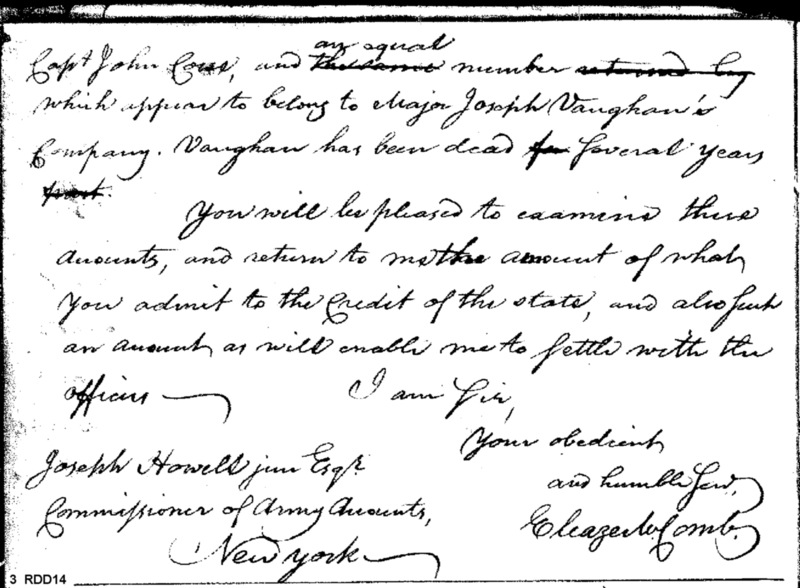 an equal
Capt John Corse, and the same number returned by
which appear to belong to Major Joseph Vaughan's
Company. Vaughan has been dead for several years
past.
You will be pleased to examine these
accounts, and return to me the amount of what
you admit to the Credit of the state, and also such
an account as will enable me to settle with the
officers
I am Sir,
Your obedient
and humble Serv.
Eleazer McComb.
Joseph Howell junr Esqr.
Commissioner of Army Accounts,
New York
3 RDD14